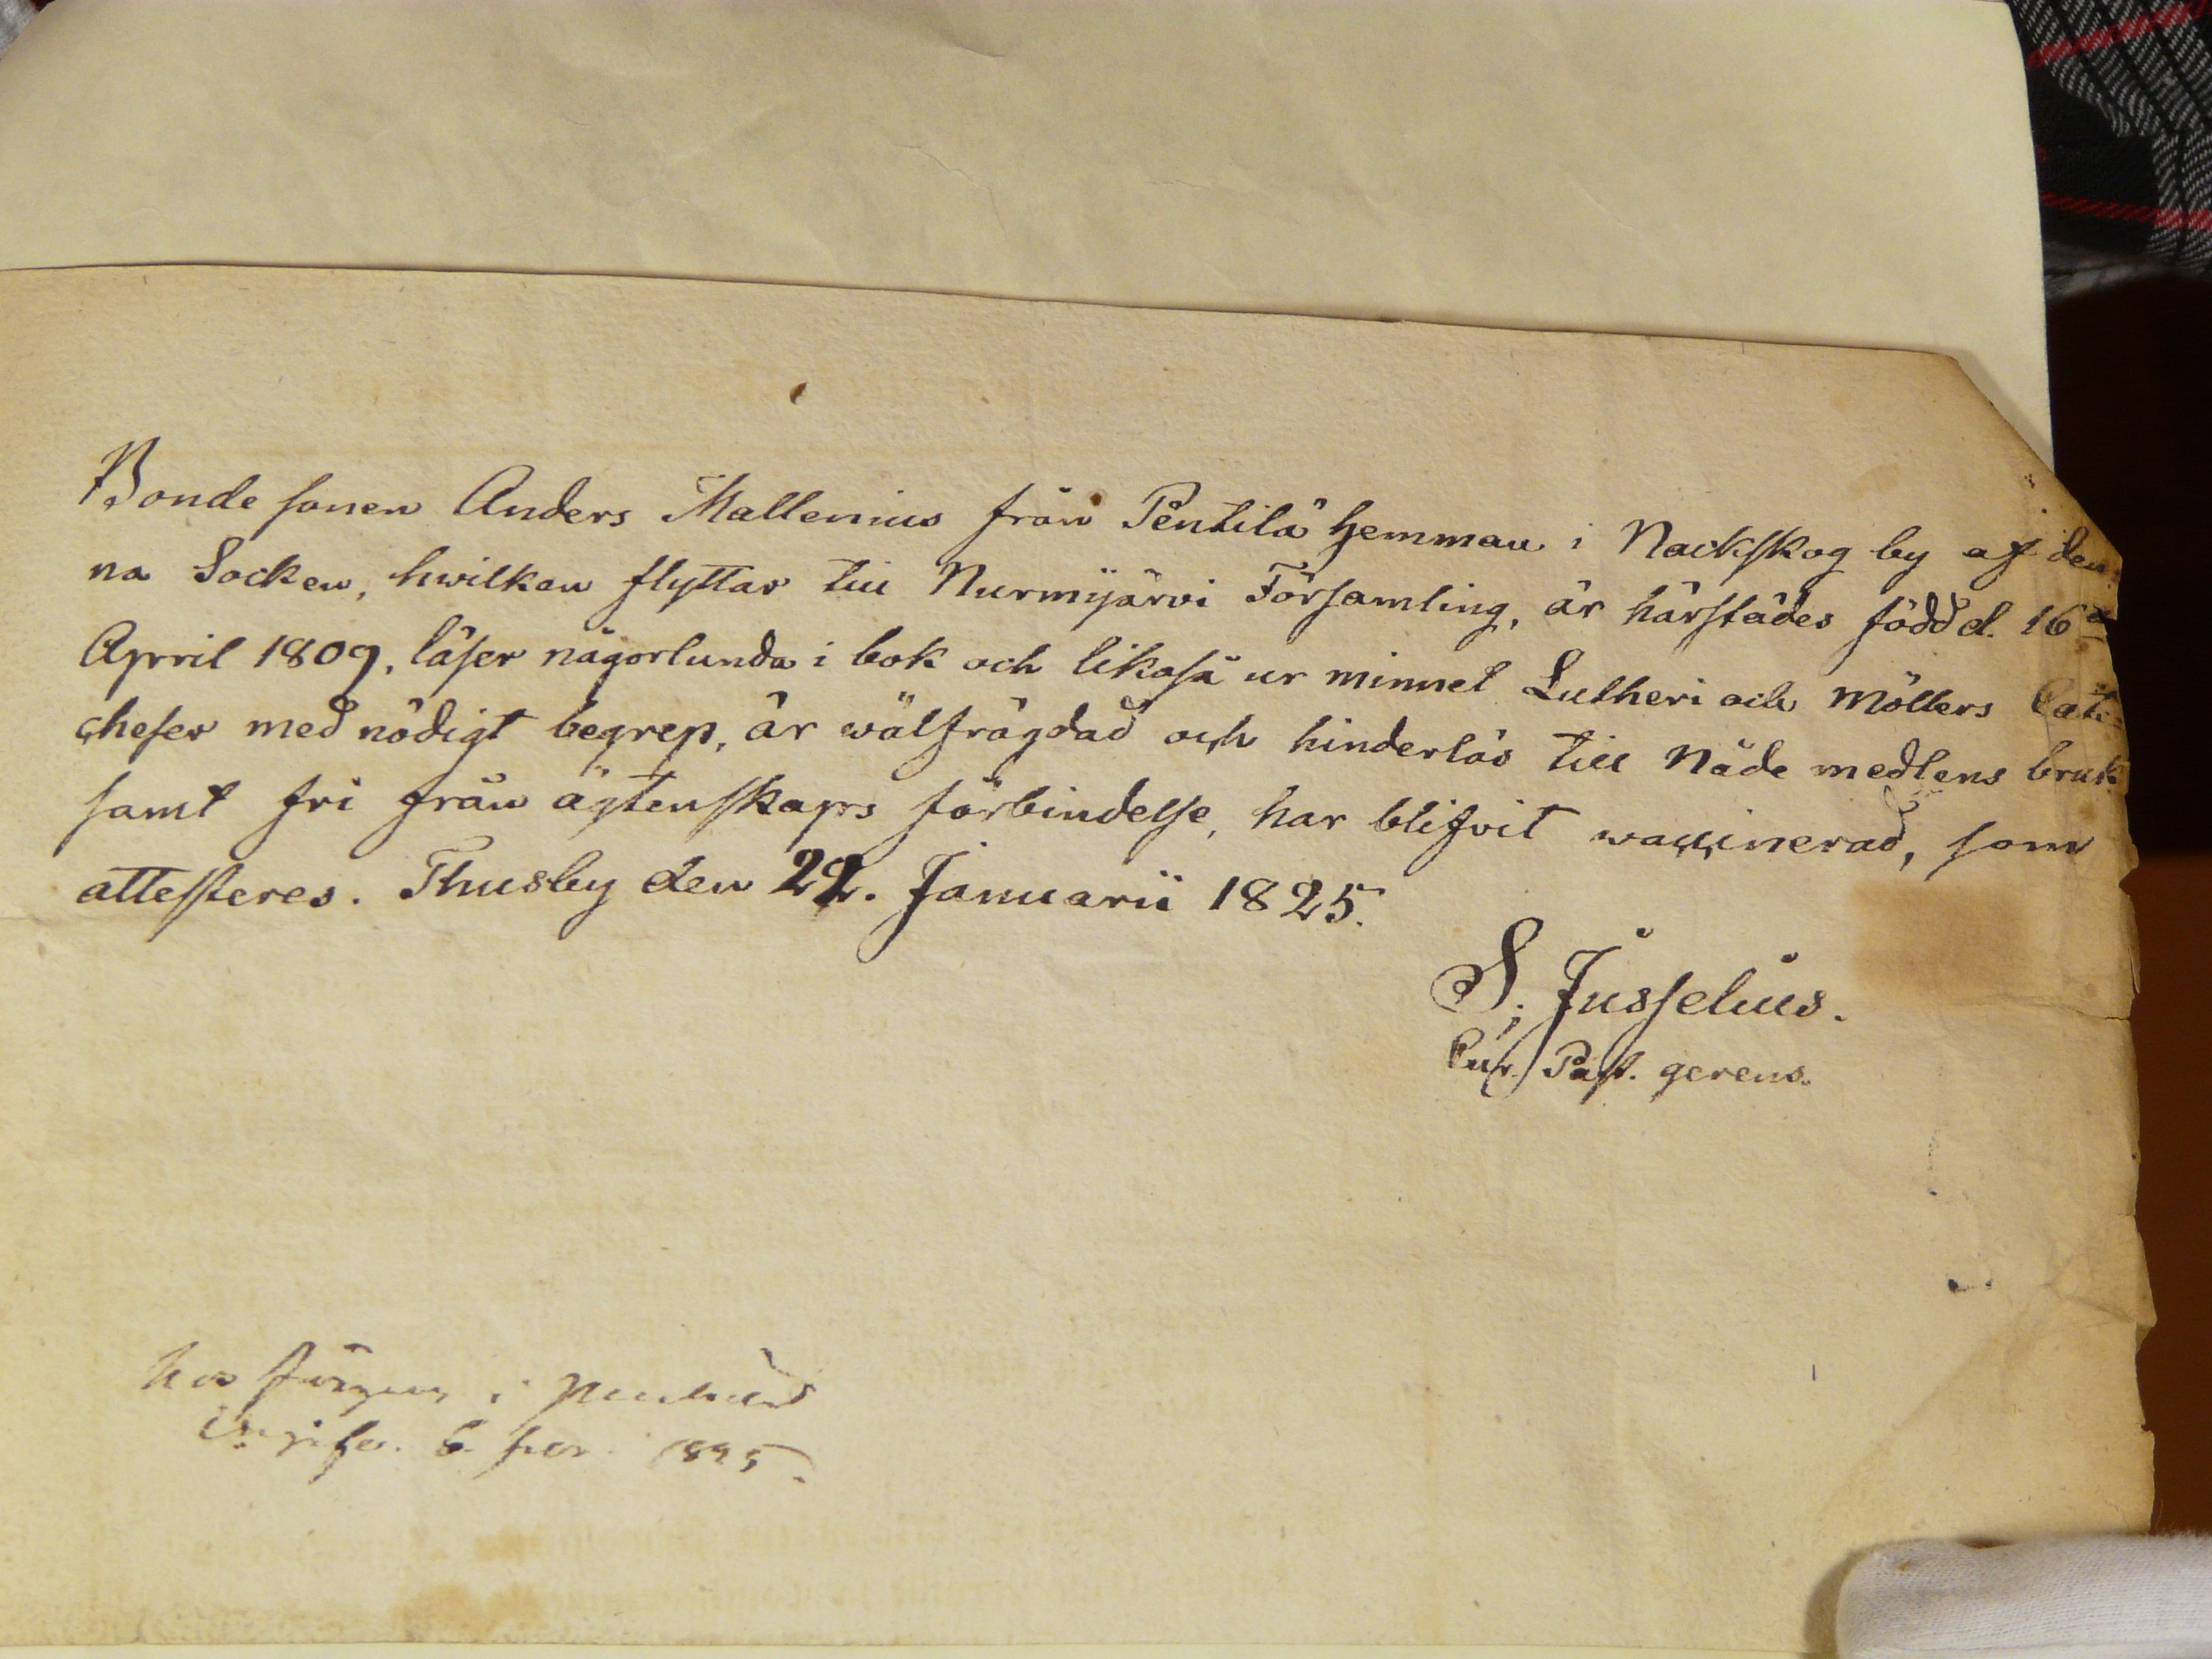 Bonde sonen Anders Mallenius från Pentilä hemman i Nackskog by af den=
na Socken, hwilken flyttar till Nurmijärvi Församling, är härstädes född d. 16
April 1809, läser någorlunda i bok och likaså ur minnet Lutheri och Möllers Cate=
cheser med nödigt begrep, är wälfrägdad och hinderlös till Nåde medlens bruk
samt fri från ägtenskaps förbindelse, har blifvit waccinerad, som
attesteres. Thusby den 22. Januarii 1825.
S. Jusselius.
Cur. Past. gerens.
hos i
1825.